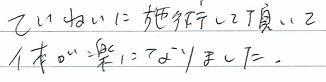 ていねいに施術して頂いて
体が楽になりました。